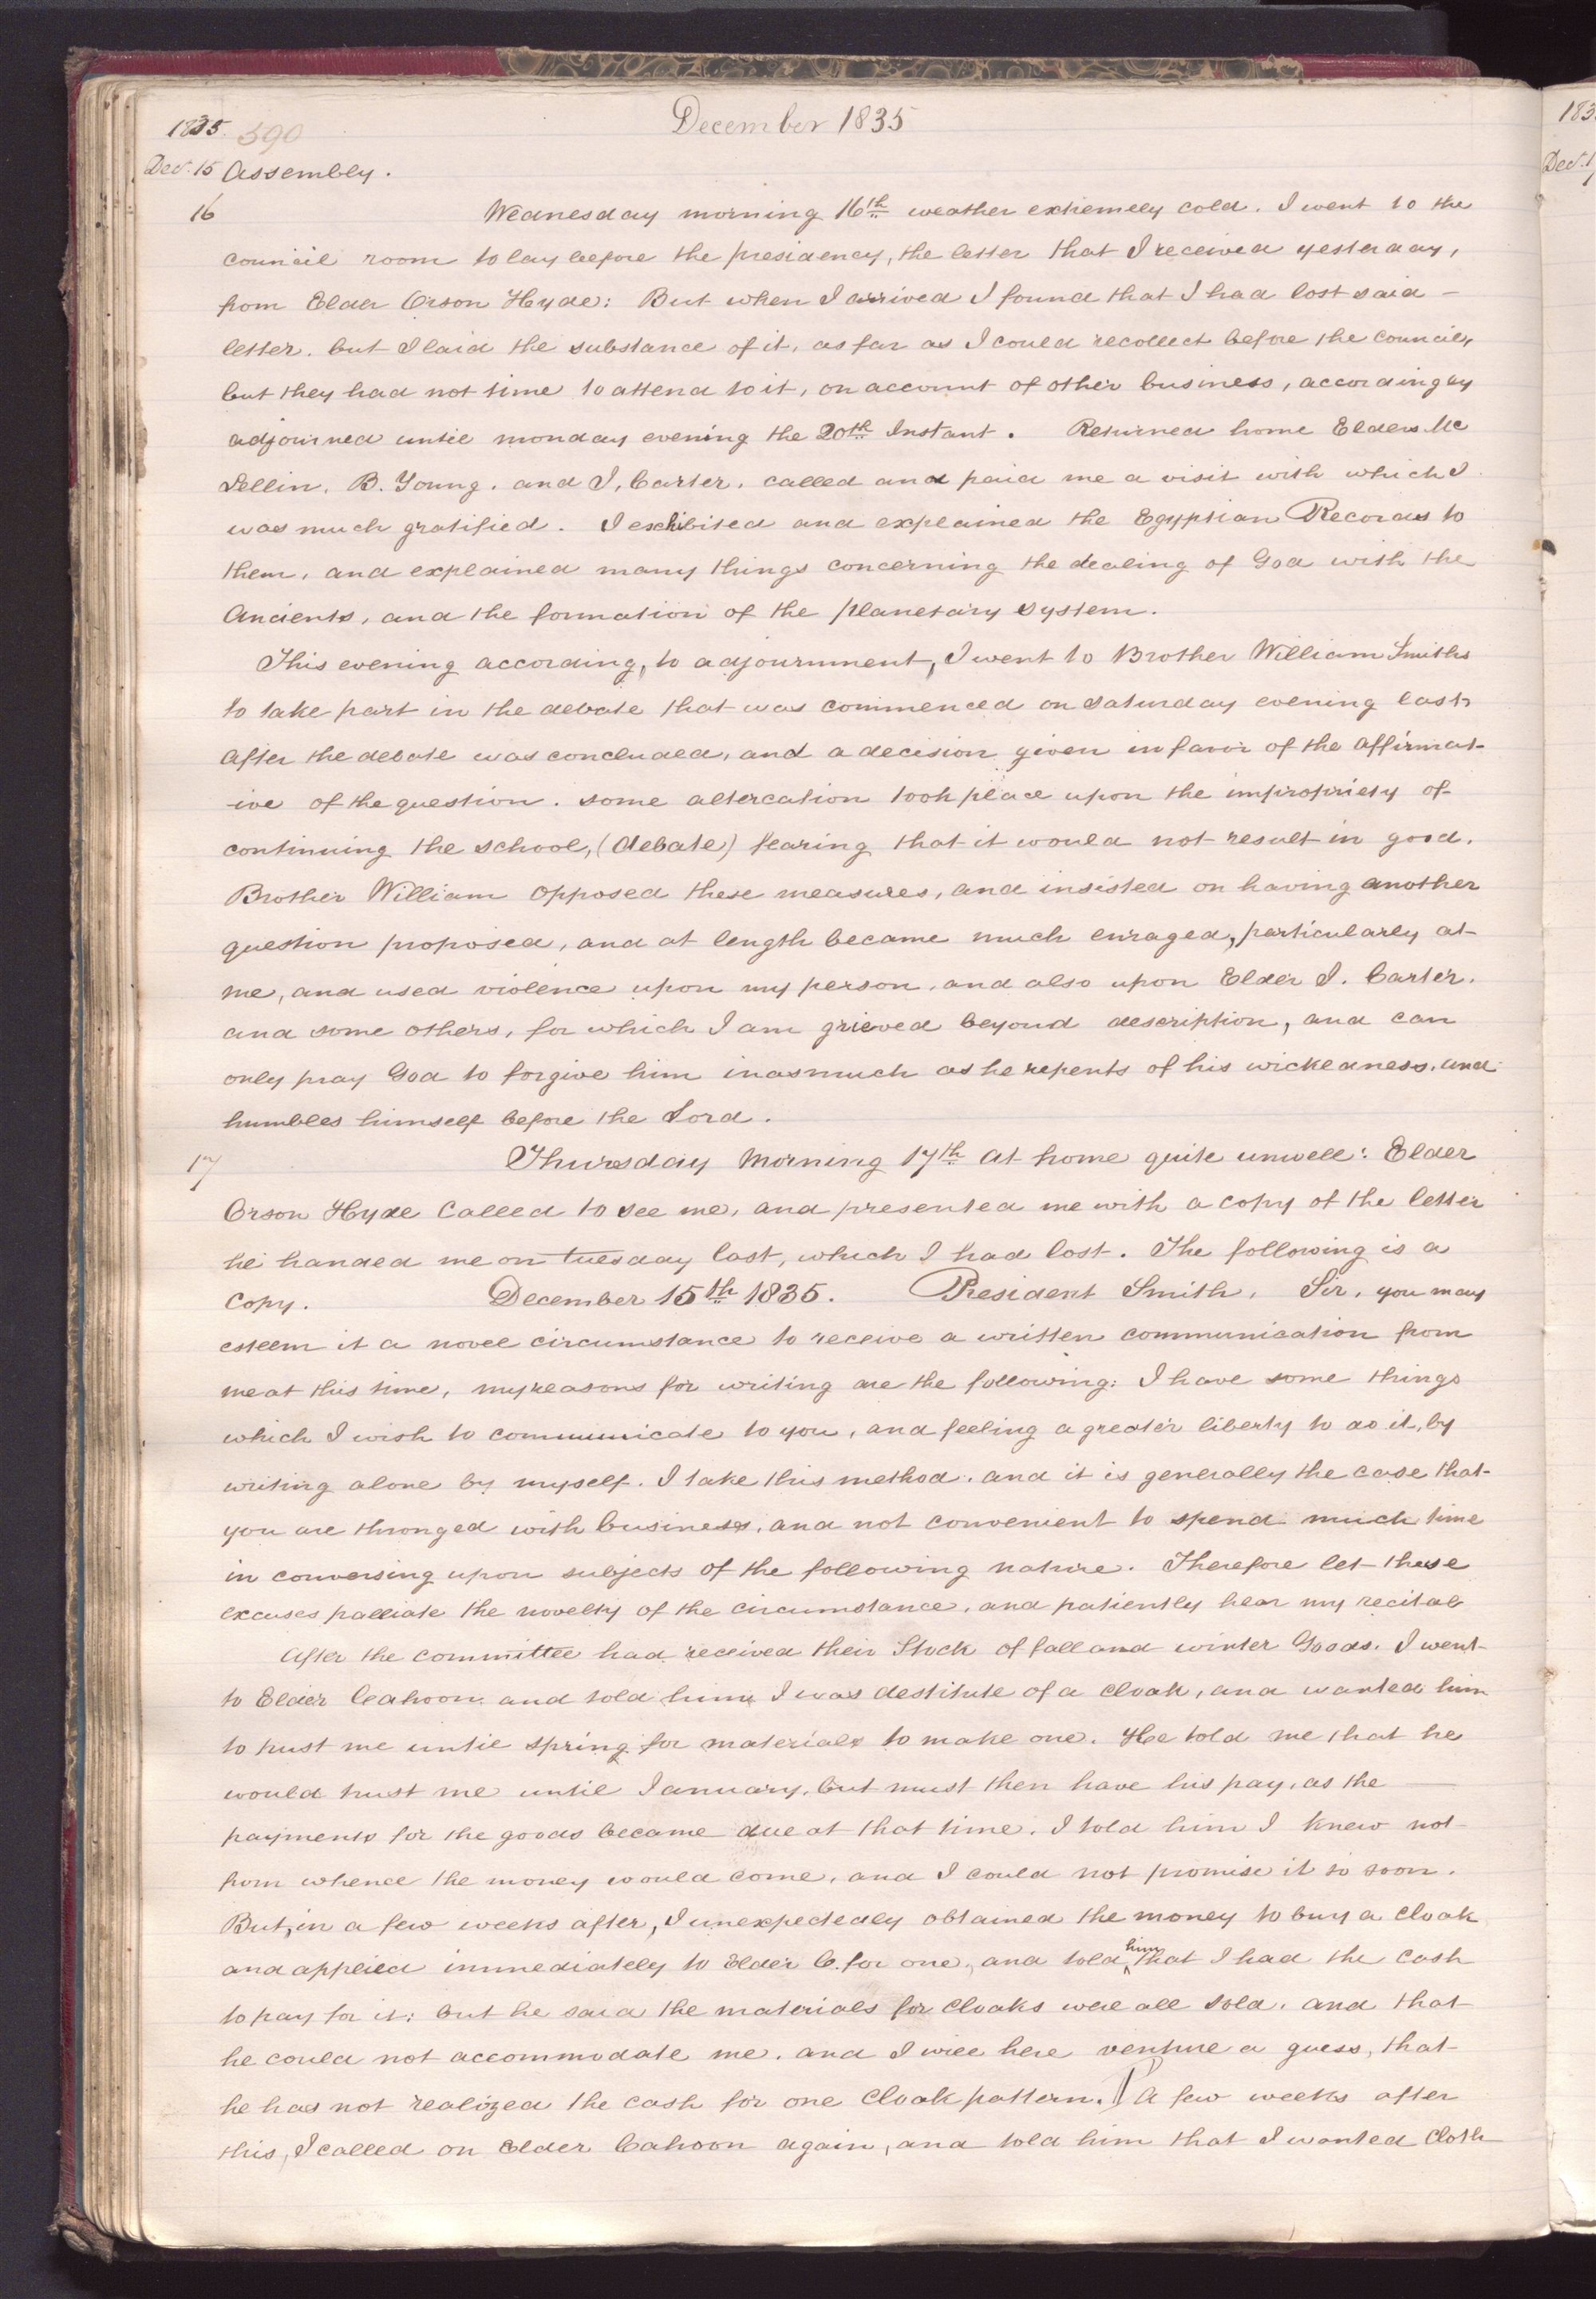 December 1835
1835. 590
Dec. 15 Assembly.
16 Wednesday morning 16th weather extremely cold. I went to the
council room to lay before the presidency, the letter that I received yesterday,
from Elder Orson Hyde: But when I arrived I found that I had lost said –
letter. but I laid the substance of it, as far as I could recollect before the council,
but they had not time to attend to it, on account of other business, accordingly
adjourned until monday evening the 20th Instant. Returned home Elders Mc
Lellin, B. Young. and J. Carter. called and paid me a visit with which I
was much gratified. I exhibited and explained the Egyptian Records to
them, and explained many things concerning the dealing of God with the
Ancients, and the formation of the planetary system.
This evening according, to adjournment, I went to Brother William Smiths
to take part in the debate that was commenced on saturday evening last.
After the debate was concluded, and a decision given in favor of the affirmat-
-ive of the question. some altercation took place upon the impropriety of
continuing the school, (debate) fearing that it would not result in good.
Brother William opposed these measures, and insisted on having another
question proposed, and at length became much enraged, particularly at
me, and used violence upon my person, and also upon Elder J. Carter.
and some others, for which I am grieved beyond description, and can
only pray God to forgive him inasmuch as he repents of his wickedness, and
humbles himself before the Lord.
17 Thursday Morning 17th at home quite unwell: Elder
Orson Hyde Called to see me, and presented me with a copy of the letter
he handed me on tuesday last, which I had lost. The following is a
copy. December 15th 1835. President Smith, Sir, you may
esteem it a novel circumstance to receive a written communication from
me at this time, my reasons for writing are the following: I have some things
which I wish to communicate to you, and feeling a greater liberty to do it, by
writing alone by myself. I take this method. and it is generally the case that
you are thronged with business, and not convenient to spend much time
in conversing upon subjects of the following nature. Therefore let these
excuses palliate the novelty of the circumstance, and patiently hear my recital
After the committee had received their Stock of fall and winter Goods. I went
to Elder Cahoon and told him I was destitute of a cloak, and wanted him
to trust me until spring for materials to make one. He told me that he
would trust me until January, but must then have his pay, as the —
payments for the goods became due at that time. I told him I knew not
from whence the money would come, and I could not promise it so soon.
But, in a few weeks after, I unexpectedly obtained the money to buy a cloak
and applied immediately to Elder C. for one, and told him that I had the cash
to pay for it: but he said the materials for cloaks were all sold, and that
he could not accommodate me. and I will here venture a guess, that
he has not realized the cash for one cloak pattern. ¶ A few weeks after
this, I called on Elder Cahoon again, and told him that I wanted cloth
183
Dec. 1